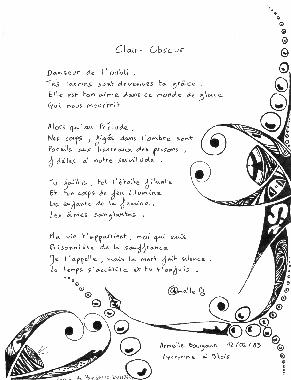 Clair Obscur
Danseur de l'oubli.
Tes larmes sont devenues ta grâce.
Elle est ton arme dans ce monde de glace
Qui nous meurtrit
Alors qu'au Prélude,
Nos corps, figés dans l'ombre sont
Pareils aux barreaux des prisons,
fidèles à notre servitude.
Tu jaillis, tel l'étoile filante
Et ton corps de feu illumine
Les enfants de la famine..
Les âmes sanglantes.
Ma vie t'appartient, moi qui suis
Prisonnière de la souffrance
Je t'appelle, mais la mort fait silence.
Le temps s'accélère et tu t'enfuis.
Armelle
12/02/83
à Blois